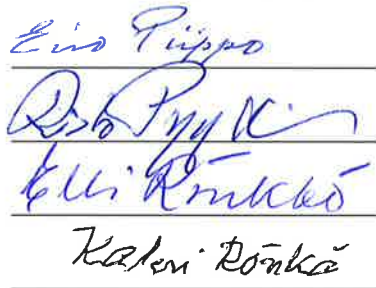 Eino Piippo
Risto
Elli Rönkkö
Kalevi Rönkä